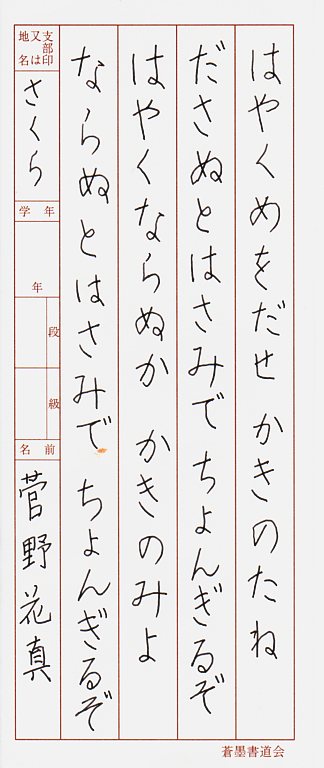 はやくめをだせ かきのたね
ださぬとはさみで ちょんぎるぞ
はやくならぬか かきのみよ
ならぬとはさみで ちょんぎるぞ
支部印
又は
地名
さくら
学年
年
段
級
名前
菅野花真
蒼墨書道会